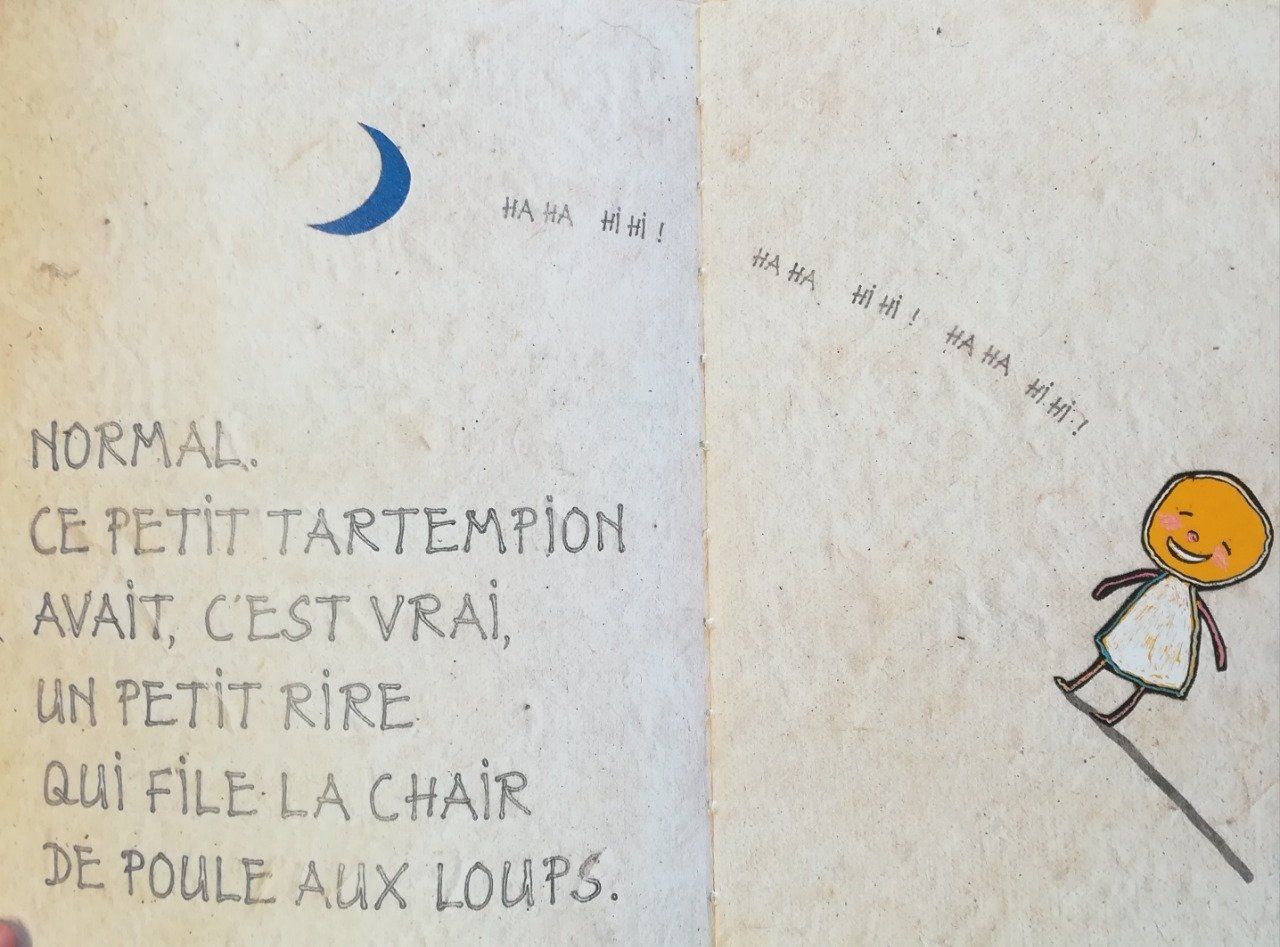 HA HA HİHİ !
HA HA HİHİ ! HA HA HİHİ !
NORMAL.
CE PETİT TARTEMPİON
AVAİT, C'EST VRAİ,
UN PETİT RİRE
QUİ FİLE LA CHAİR
DE POULE AUX LOUPS.